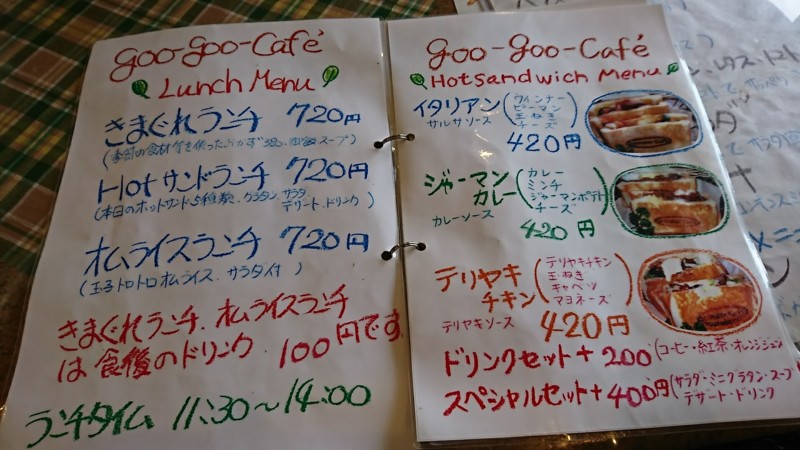 goo-goo-Café
Lunch Menu
きまぐれランチ 720円
Hotサンドランチ 720円
(本日のホットサンド5種類、グラタン、サラダ、
デザート、ドリンク)
オムライスランチ 720円
(玉子トロトロオムライス、サラダ付)
きまぐれランチ、オムライスランチ
は食後のドリンク 100円です
ランチタイム 11:30~14:00
goo-goo-Café
Hotsandwich Menu
イタリアン
サルサソース
(ウインナー
ピーマン
玉ねぎ
チーズ)
420円
ジャーマン
カレー
カレーソース
(カレー
ミンチ
ジャーマンポテト
チーズ)
420円
テリヤキ
チキン
テリヤキソース
(テリヤキチキン
玉ねぎ
キャベツ
マヨネーズ)
420円
ドリンクセット+200 (コーヒー・紅茶・オレンジジュース
スペシャルセット+400円 (サラダ・ミニグラタン・スープ
デザート・ドリンク